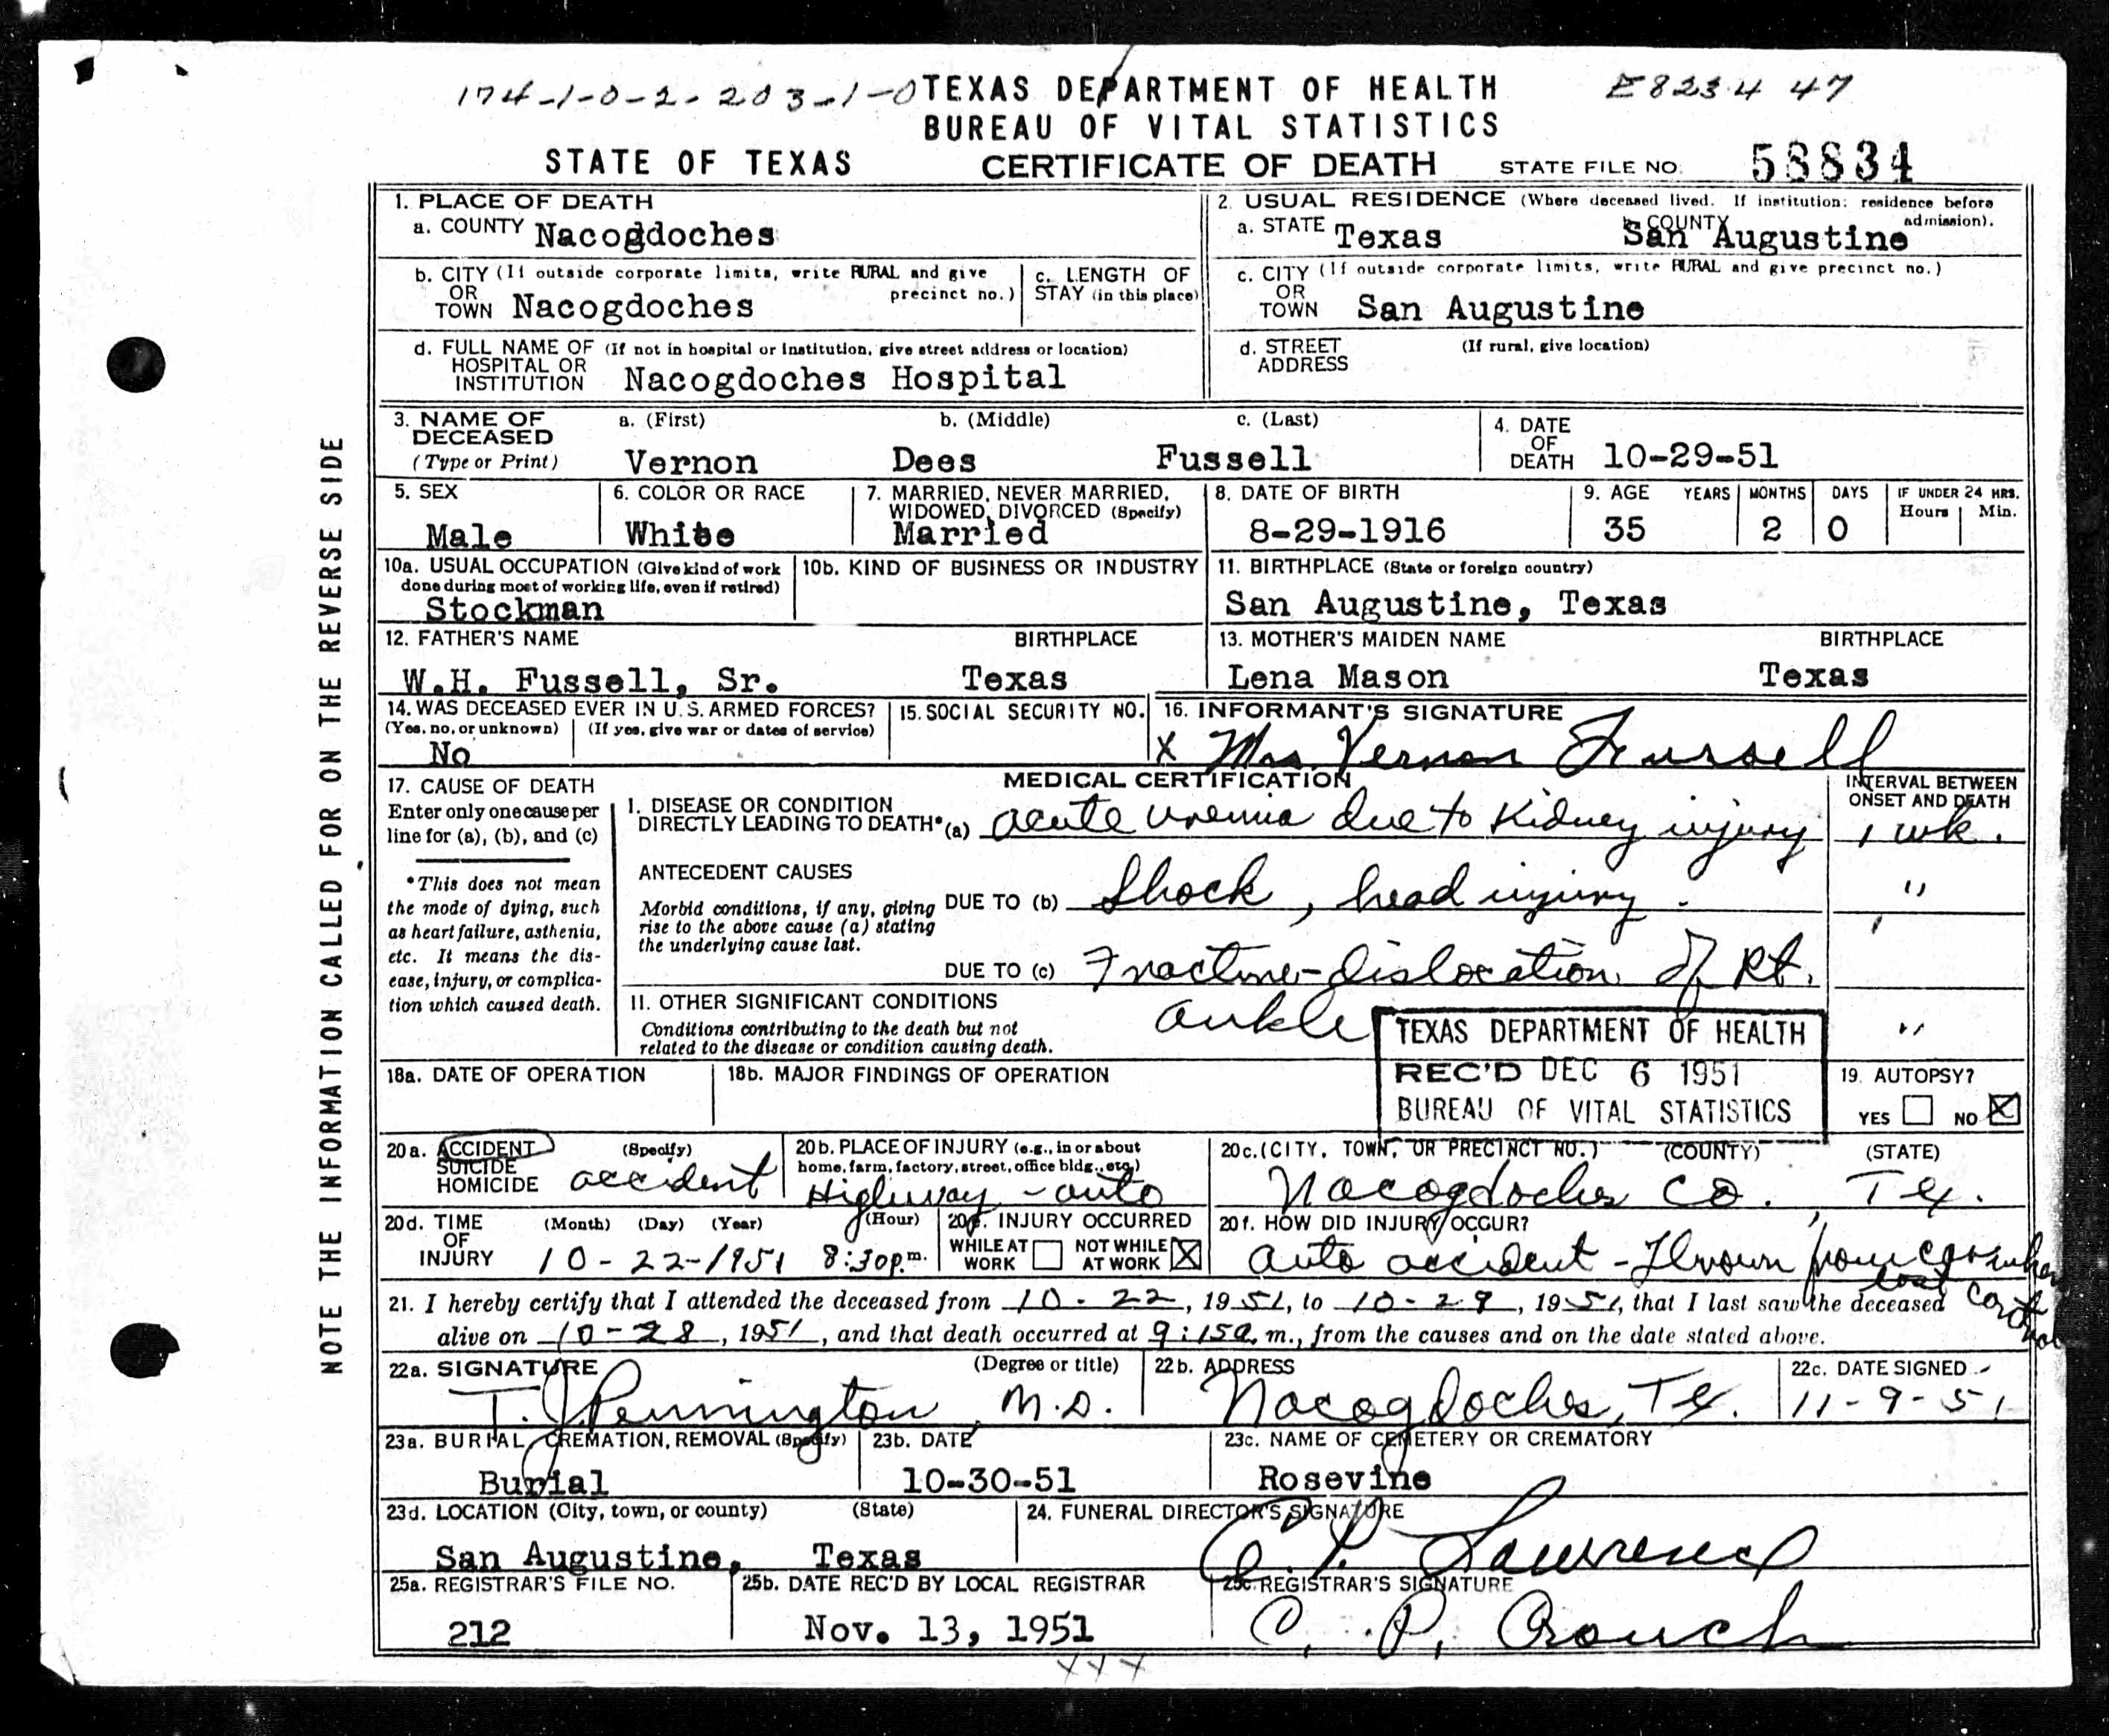 174-1-0-2-203-1-0 TEXAS DEPARTMENT OF HEALTH E8234 47
BUREAU OF VITAL STATISTICS
STATE OF TEXAS CERTIFICATE OF DEATH STATE FILE NO. 58834
1. PLACE OF DEATH
a. COUNTY Nacogdoches
2. USUAL RESIDENCE (Where deceased lived. If institution: residence before admission).
a. STATE Texas b. COUNTY San Augustine
b. CITY (If outside corporate limits, write RURAL and give precinct no.)
OR
TOWN Nacogdoches
c. LENGTH OF
STAY (in this place)
c. CITY (If outside corporate limits, write RURAL and give precinct no.)
OR
TOWN San Augustine
d. FULL NAME OF (If not in hospital or institution, give street address or location)
HOSPITAL OR
INSTITUTION Nacogdoches Hospital
d. STREET (If rural, give location)
ADDRESS
3. NAME OF a. (First) b. (Middle) c. (Last)
DECEASED
(Type or Print) Vernon Dees Fussell
4. DATE
OF
DEATH 10-29-51
5. SEX
Male
6. COLOR OR RACE
White
7. MARRIED, NEVER MARRIED,
WIDOWED, DIVORCED (Specify)
Married
8. DATE OF BIRTH
8-29-1916
9. AGE YEARS MONTHS DAYS IF UNDER 24 HRS.
Hours Min.
35 2 0
10a. USUAL OCCUPATION (Give kind of work
done during most of working life, even if retired)
Stockman
10b. KIND OF BUSINESS OR INDUSTRY
11. BIRTHPLACE (State or foreign country)
San Augustine, Texas
12. FATHER'S NAME BIRTHPLACE
W.H. Fussell, Sr. Texas
13. MOTHER'S MAIDEN NAME BIRTHPLACE
Lena Mason Texas
14. WAS DECEASED EVER IN U.S. ARMED FORCES?
(Yes, no, or unknown) (If yes, give war or dates of service)
No
15. SOCIAL SECURITY NO.
16. INFORMANT'S SIGNATURE
X Mrs. Vernon Fussell
17. CAUSE OF DEATH
Enter only one cause per
line for (a), (b), and (c)
*This does not mean
the mode of dying, such
as heart failure, asthenia,
etc. It means the dis-
ease, injury, or complica-
tion which caused death.
MEDICAL CERTIFICATION
INTERVAL BETWEEN
ONSET AND DEATH
I. DISEASE OR CONDITION
DIRECTLY LEADING TO DEATH* (a) acute uremia due to Kidney injury 1 wk.
ANTECEDENT CAUSES
Morbid conditions, if any, giving
rise to the above cause (a) stating
the underlying cause last.
DUE TO (b) Shock, head injury. "
DUE TO (c) Fracture-dislocation of Rt.
ankle "
II. OTHER SIGNIFICANT CONDITIONS
Conditions contributing to the death but not
related to the disease or condition causing death.
TEXAS DEPARTMENT OF HEALTH
REC'D DEC 6 1951
BUREAU OF VITAL STATISTICS
18a. DATE OF OPERATION
18b. MAJOR FINDINGS OF OPERATION
19. AUTOPSY?
YES NO X
20a. ACCIDENT (Specify)
SUICIDE
HOMICIDE accident
20b. PLACE OF INJURY (e.g., in or about
home, farm, factory, street, office bldg., etc.)
Highway - auto
20c. (CITY, TOWN, OR PRECINCT NO.) (COUNTY) (STATE)
Nacogdoches Co., Tex.
20d. TIME (Month) (Day) (Year) (Hour)
OF
INJURY 10-22-1951 8:30 p.m.
20e. INJURY OCCURRED
WHILE AT
WORK
NOT WHILE
AT WORK X
20f. HOW DID INJURY OCCUR?
auto accident - Thrown from car when
lost control
21. I hereby certify that I attended the deceased from 10-22, 1951, to 10-29, 1951, that I last saw the deceased
alive on 10-28, 1951, and that death occurred at 9:15a. m., from the causes and on the date stated above.
22a. SIGNATURE (Degree or title)
T. J. Pennington, M.D.
22b. ADDRESS
Nacogdoches, Tex.
22c. DATE SIGNED
11-9-51
23a. BURIAL, CREMATION, REMOVAL (Specify)
Burial
23b. DATE
10-30-51
23c. NAME OF CEMETERY OR CREMATORY
Rosevine
23d. LOCATION (City, town, or county) (State)
San Augustine, Texas
24. FUNERAL DIRECTOR'S SIGNATURE
Lawrence
25a. REGISTRAR'S FILE NO.
212
25b. DATE REC'D BY LOCAL REGISTRAR
Nov. 13, 1951
25c. REGISTRAR'S SIGNATURE
C. P. Crouch
XXX
NOTE THE INFORMATION CALLED FOR ON THE REVERSE SIDE